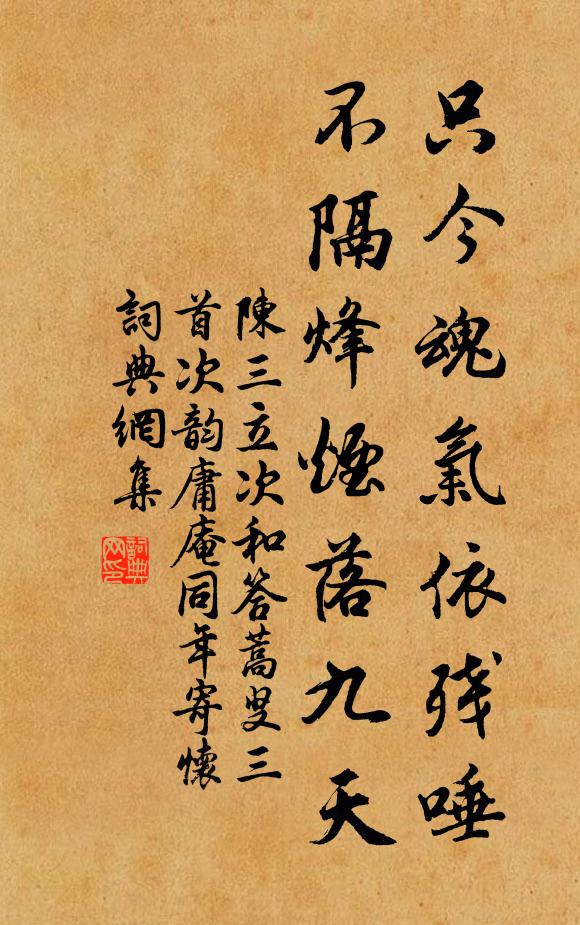 只今魂氣依残唾
不隔烽煙落九天
陳三立次和答蒿叟三
首次韵庸庵同年寄懷
詞典網集
詞典
网印